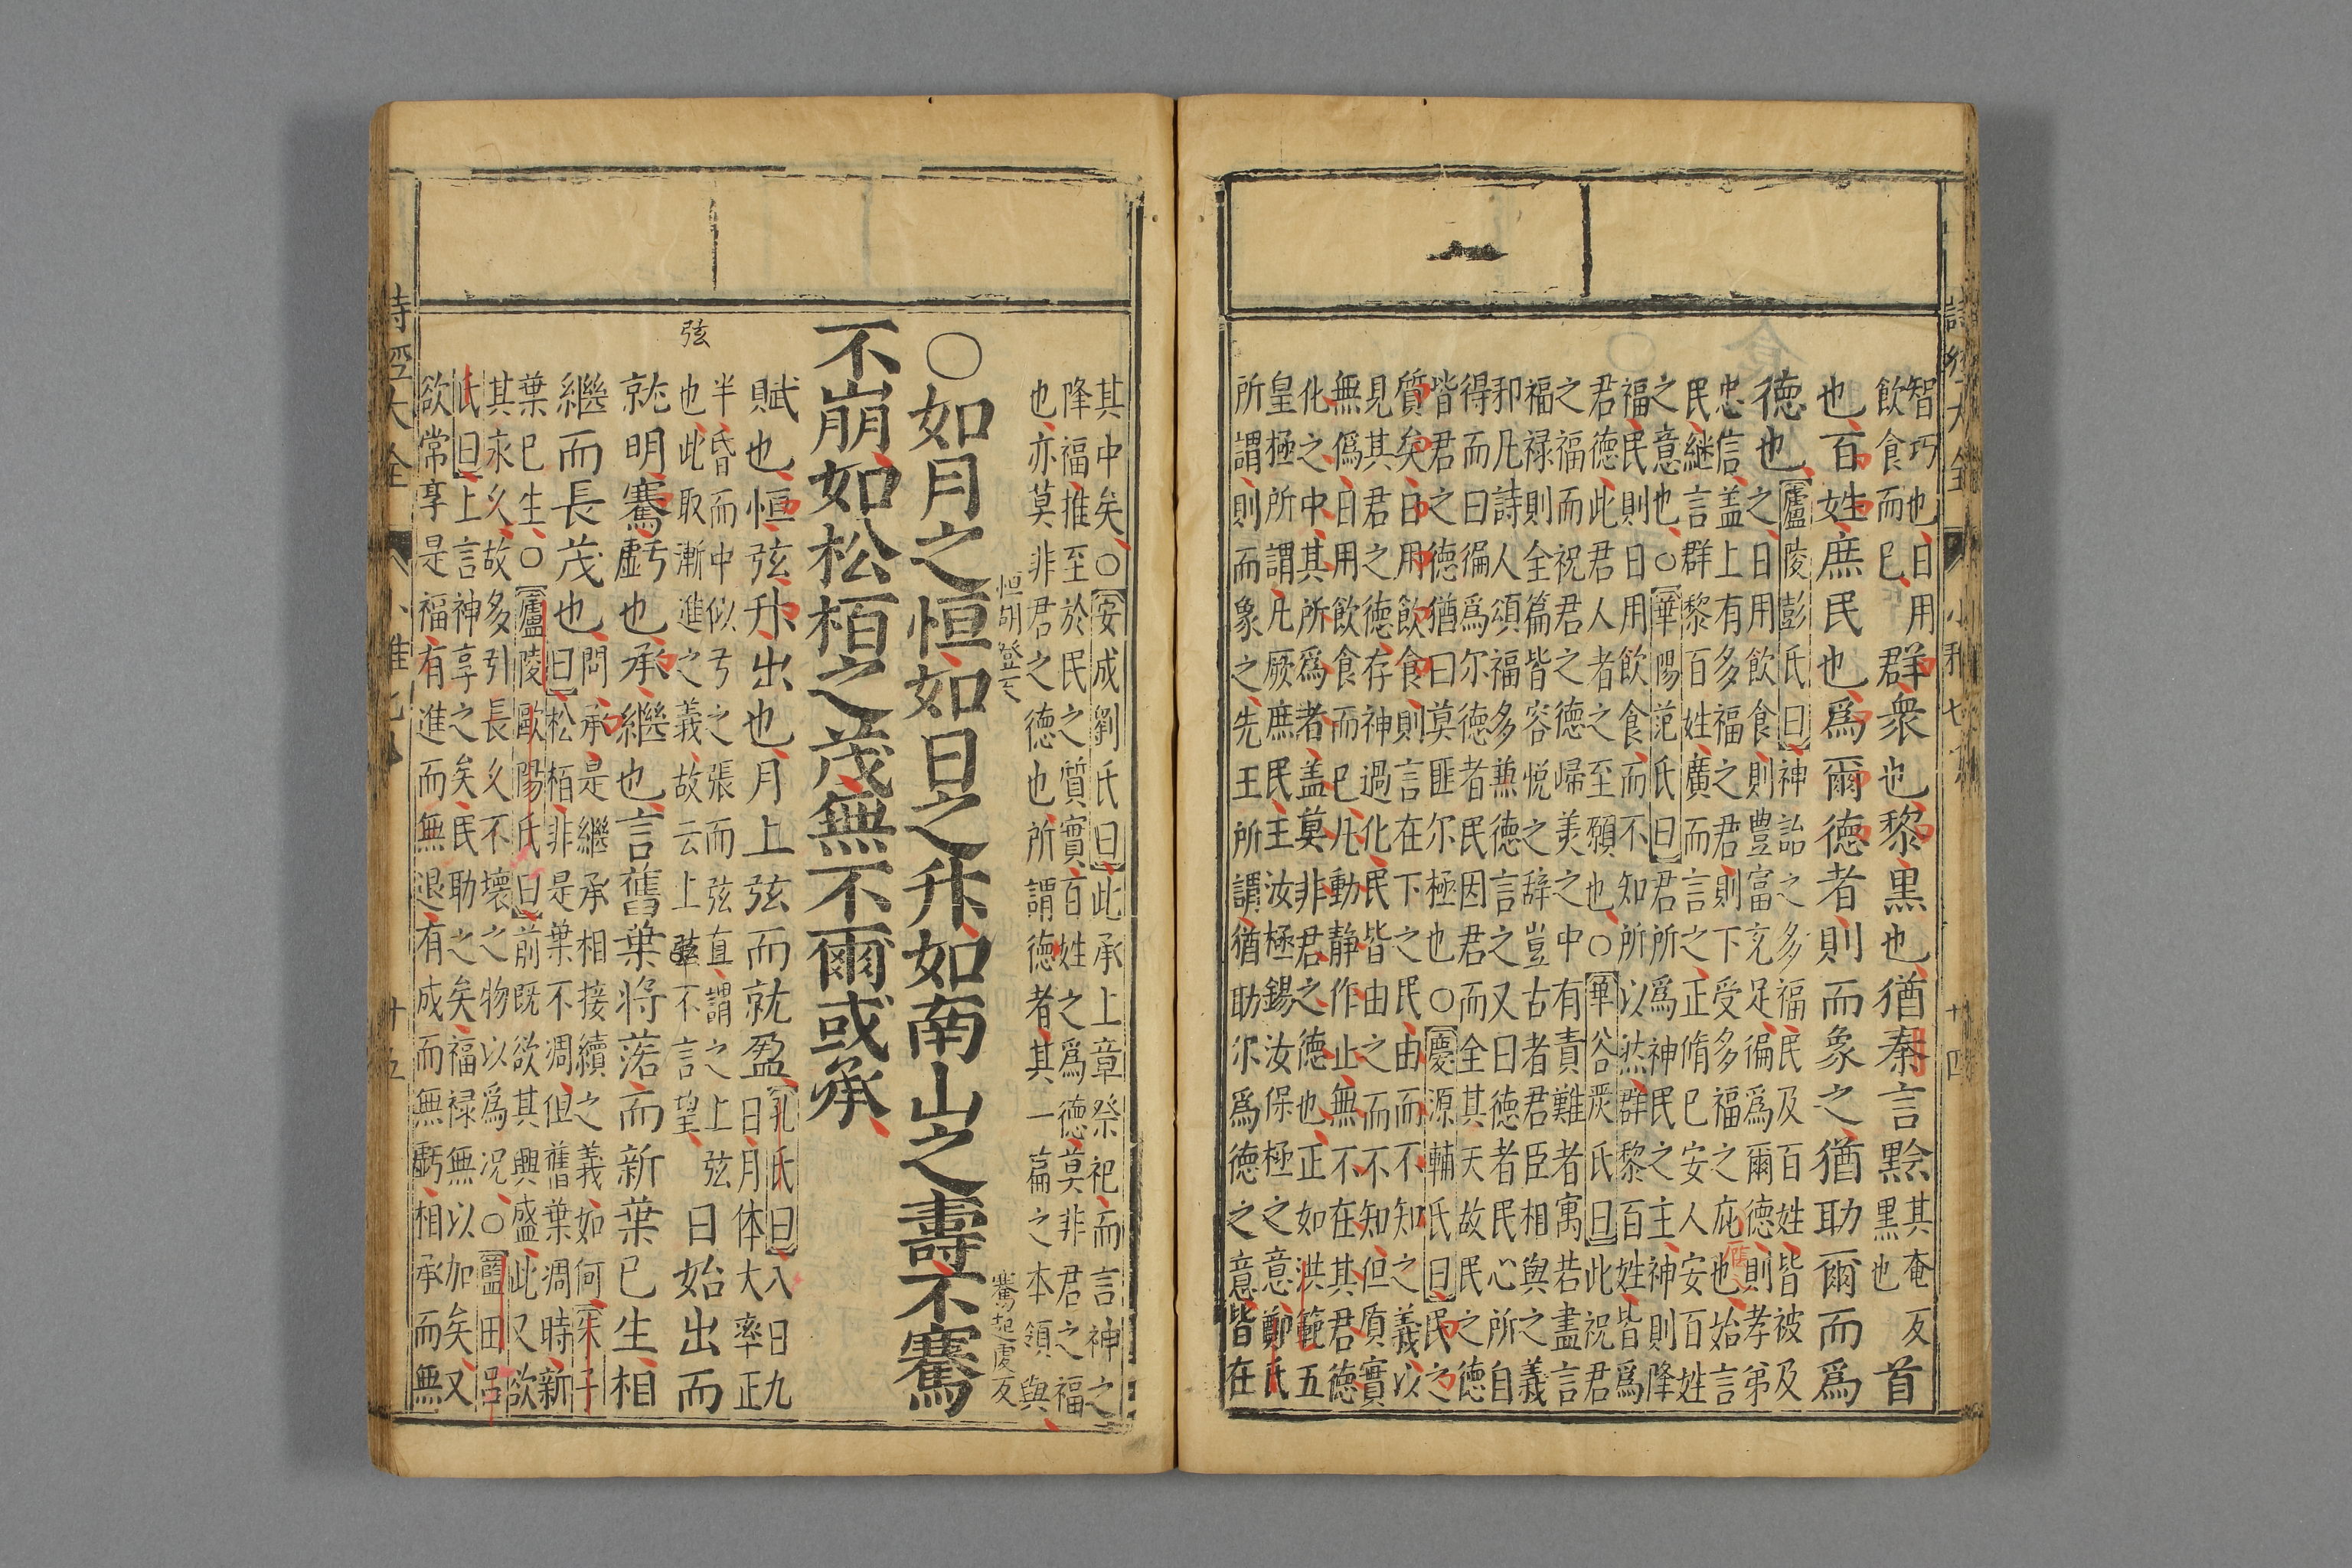 智巧也日用
飲食而已
群衆也黎黒也猶秦言黔
其奄反
黒也
首
也百姓庶民也爲爾德者則而象之猶助爾而爲
德也
廬陵彭氏曰神詒之多福民及百姓皆被及
之日用飲食則豊富充足徧爲爾德則孝弟
忠信盖上有多福之君則下受多福之庇也始言
民継言群黎百姓廣而言之正脩已安人安百姓
之意也○華陽范氏曰君所爲神民之主神則降
福民則日用飲食而不知所以然群黎百姓皆爲
君德此君人者之至願也○華谷嚴氏曰此祝君
之福而祝君之德歸美之中有責難者寓若盡言
福禄則全篇皆容悦之辞豈古者君臣相與之義
抑凡詩人頌福多無德言之又曰德者民心所自
得而曰徧爲尔德者民因君而全其天故民之德
皆君之德猶曰莫匪尔極也○慶源輔氏曰民之
質矣日用飲食則言在下之民由而不知之義以
見其君之德存神過化民皆由之而不知但質實
無僞日用飲食而已凢動静作止無不在其君德
化之中其所爲者盖莫非君之德也正如洪範五
皇極所謂凢厥庶民王汝極錫汝保極之意鄭氏
所謂則而象之先王所謂猶助尔爲德之意皆在
其中矣○安成劉氏曰此承上章祭祀而言神之
降福推至於民之質實百姓之爲德莫非君之福
也亦莫非君之德也所謂德者其一篇之本領與
恒胡登反
騫起虔反
○如月之恒如日之升如南山之壽不騫
不崩如松栢之茂無不爾或承
賦也恒弦升出也月上弦而就盈
孔氏曰八日九
日月体大率正
弦
半昏而中似弓之張而弦直謂之上弦
也此取漸進之義故云上弦不言望
日始出而
就明騫虧也承繼也言舊葉將落而新葉已生相
繼而長茂也
問承是繼承相接續之義如何朱子
曰松栢非是葉不凋但舊葉凋時新
葉已生○廬陵歐陽氏曰前既欲其興盛此又欲
其永久故多引長久不壞之物以爲况○藍田呂
氏曰上言神享之矣民助之矣福禄無以加矣又
欲常享是福有進而無退有成而無虧相承而無
詩經大全
十五